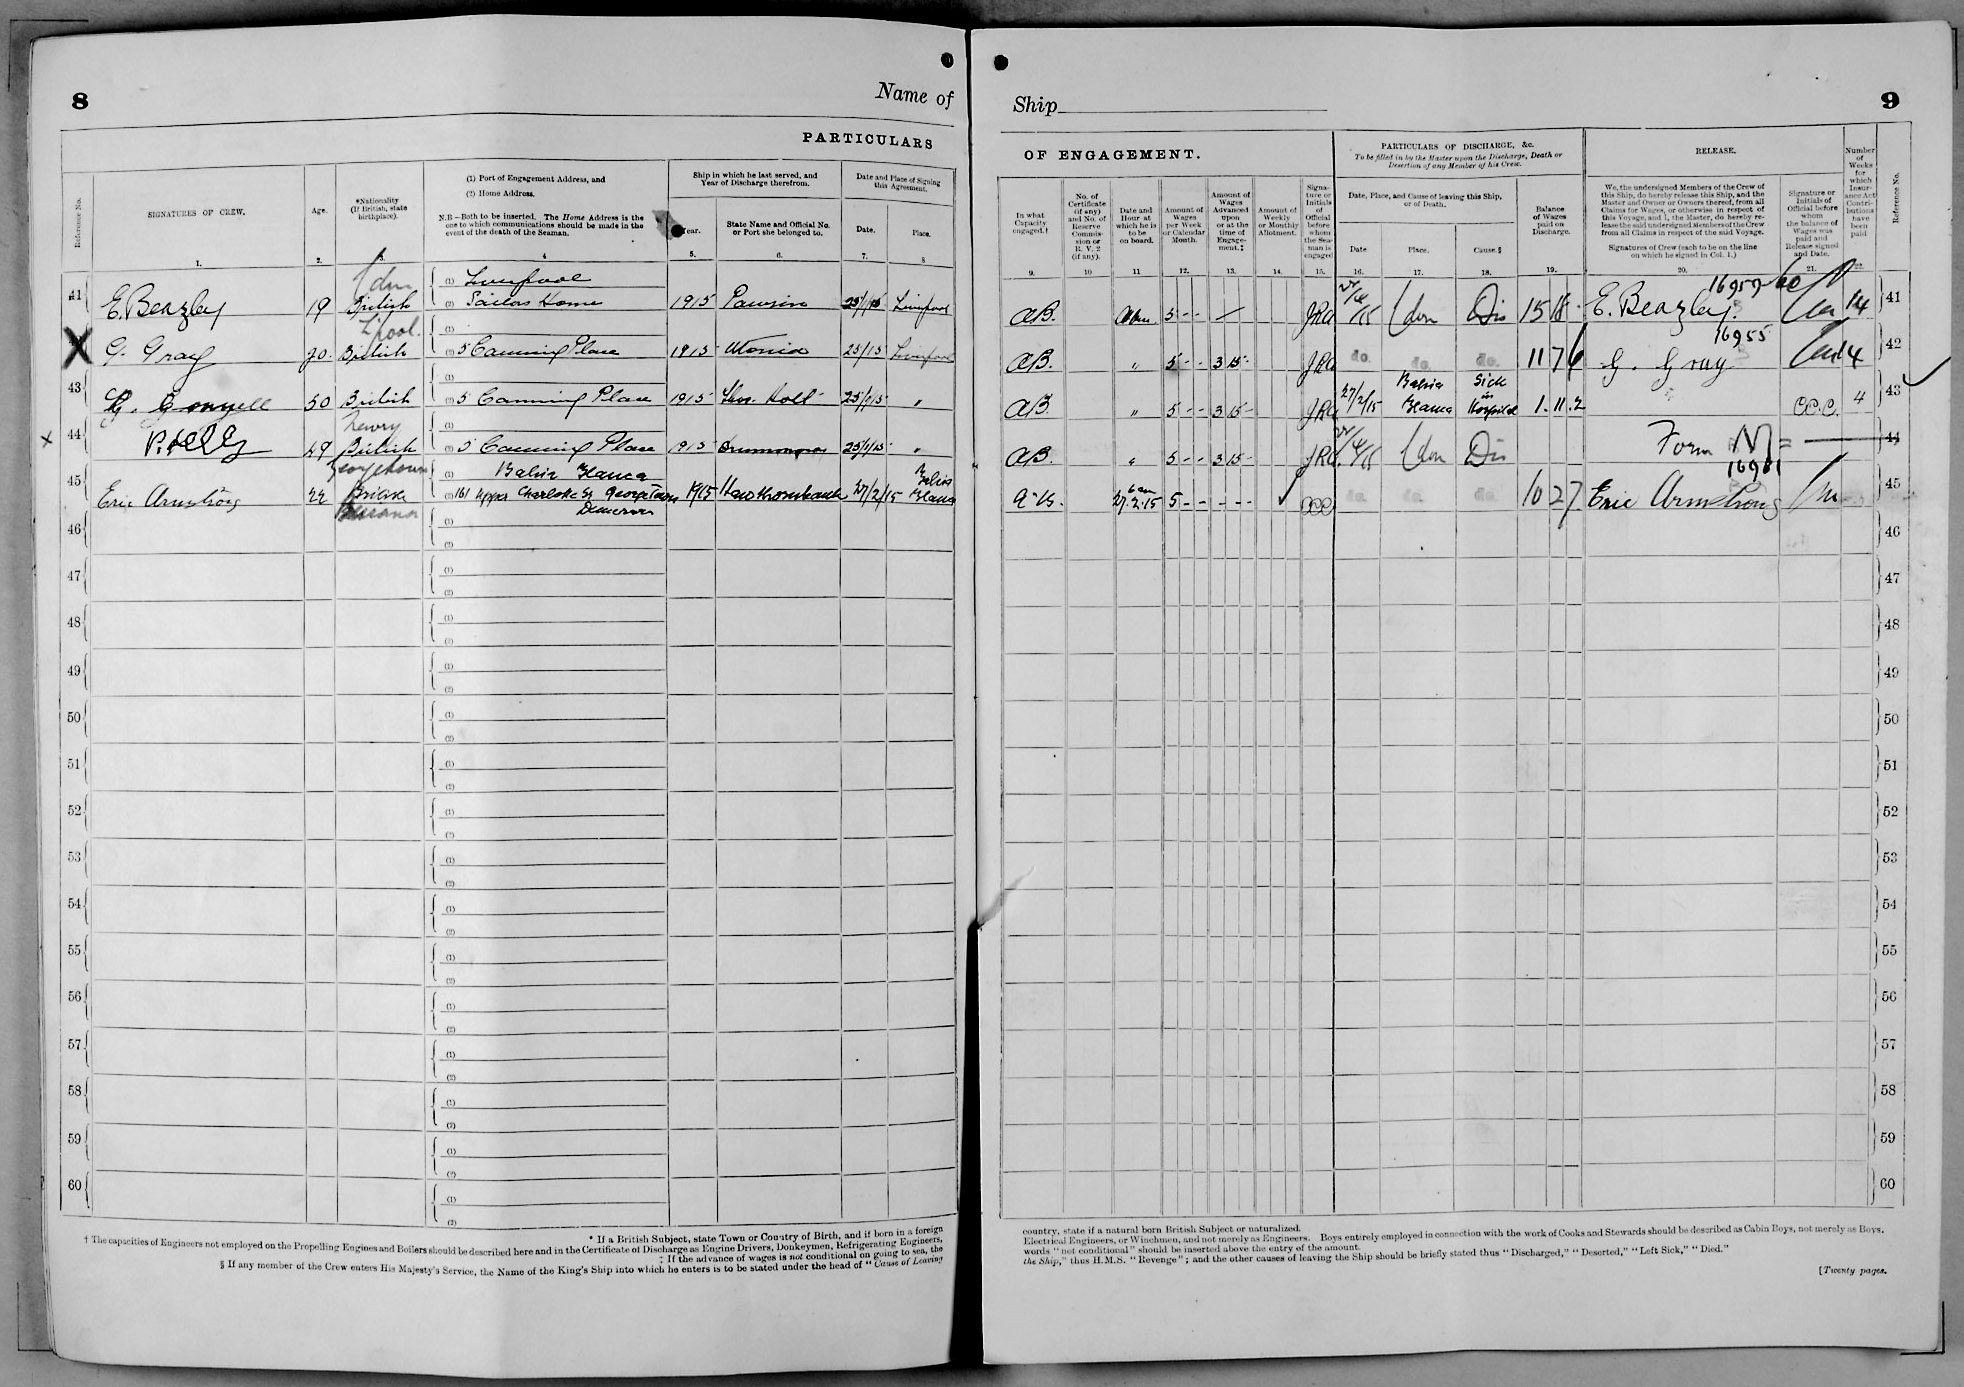 8
Name of
PARTICULARS
Reference No.
SIGNATURES OF CREW.
Age.
*Nationality
(If British, state
birthplace).
(1) Port of Engagement Address, and
(2) Home Address.
N.B—Both to be inserted. The Home Address is the
one to which communications should be made in the
event of the death of the Seaman.
Ship in which he last served, and
Year of Discharge therefrom.
Year.
State Name and Official No.
or Port she belonged to.
Date and Place of Signing
this Agreement.
Date.
Place.
1. 2. 3. 4 5. 6. 7. 8
41 E. Beazley 19 British (1) Liverpool
(2) Sailors Home 1915 25/1/15 Liverpool
L'pool.
G. Gray 20. British (2) 5 Canning Place 1915 25/1/15 Liverpool
43 50 British (2) 5 Canning Place 1915 Thos. Holt 25/1/15 "
Newry
44 P. Kelly 49 British (2) 5 Canning Place 1915 25/1/15 "
Georgetown (1) Bahia Blanca Bahia
45 Eric Armstrong 22 British (2) 161 Upper Charlotte St Georgetown 1915 Hawthornbank 27/2/15 Blanca
Demerara
46 (1)
(2)
47 (1)
(2)
48 (1)
(2)
49 (1)
(2)
50 (1)
(2)
51 (1)
(2)
52 (1)
(2)
53 (1)
(2)
54 (1)
(2)
55 (1)
(2)
56 (1)
(2)
57 (1)
(2)
58 (1)
(2)
59 (1)
(2)
60 (1)
(2)
* If a British Subject, state Town or Country of Birth, and if born in a foreign
† The capacities of Engineers not employed on the Propelling Engines and Boilers should be described here and in the Certificate of Discharge as Engine Drivers, Donkeymen, Refrigerating Engineers,
‡ If the advance of wages is not conditional on going to sea, the
§ If any member of the Crew enters His Majesty's Service, the Name of the King's Ship into which he enters is to be stated under the head of "Cause of Leaving
Ship
9
OF ENGAGEMENT.
PARTICULARS OF DISCHARGE, &c.
To be filled in by the Master upon the Discharge, Death or
Desertion of any Member of his Crew.
RELEASE.
In what
Capacity
engaged.†
No. of
Certificate
(if any)
and No. of
Reserve
Commis-
sion or
R. V. 2
(if any).
Date and
Hour at
which he is
to be
on board.
Amount of
Wages
per Week
or Calendar
Month.
Amount of
Wages
Advanced
upon
or at the
time of
Engage-
ment.‡
Amount of
Weekly
or Monthly
Allotment.
Signa-
ture or
Initials
of
Official
before
whom
the Sea-
man is
engaged
Date, Place, and Cause of leaving this Ship,
or of Death.
Date
Place.
Cause.§
Balance
of Wages
paid on
Discharge.
We, the undersigned Members of the Crew of
this Ship, do hereby release this Ship, and the
Master and Owner or Owners thereof, from all
Claims for Wages, or otherwise in respect of
this Voyage, and I, the Master, do hereby re-
lease the said undersigned Members of the Crew
from all Claims in respect of the said Voyage.
Signatures of Crew (each to be on the line
on which he signed in Col. 1.)
Signature or
Initials of
Official before
whom
the balance of
Wages was
paid and
Release signed
and Date.
Number
of
Weeks
for
which
Insur-
ance Act
Contri-
butions
have
been
paid
Reference No.
9. 10 11 12. 13. 14. 15. 16. 17. 18. 19. 20. 21.
AB. 5 - - JRA Dis 15 18 - E. Beazley 14 41
16955
AB. " 5 - - 3 15 - JRA do. do. do. 11 7 6 G. Gray 4 42
AB. " 5 - - 3 15 - JRA 27/2/15 Bahia Blanca Sick in Hospital 1. 11. 2 4 43
AB. " 5 - - 3 15 - JRA Dis Form M 44
6 am
27.2.15 5 - - do. do. do. 10 2 7 Eric Armstrong 45
46
47
48
49
50
51
52
53
54
55
56
57
58
59
60
country, state if a natural born British Subject or naturalized.
Electrical Engineers, or Winchmen, and not merely as Engineers. Boys entirely employed in connection with the work of Cooks and Stewards should be described as Cabin Boys, not merely as Boys.
words "not conditional" should be inserted above the entry of the amount.
the Ship," thus H.M.S. "Revenge"; and the other causes of leaving the Ship should be briefly stated thus "Discharged," "Deserted," "Left Sick," "Died."
[Twenty pages.